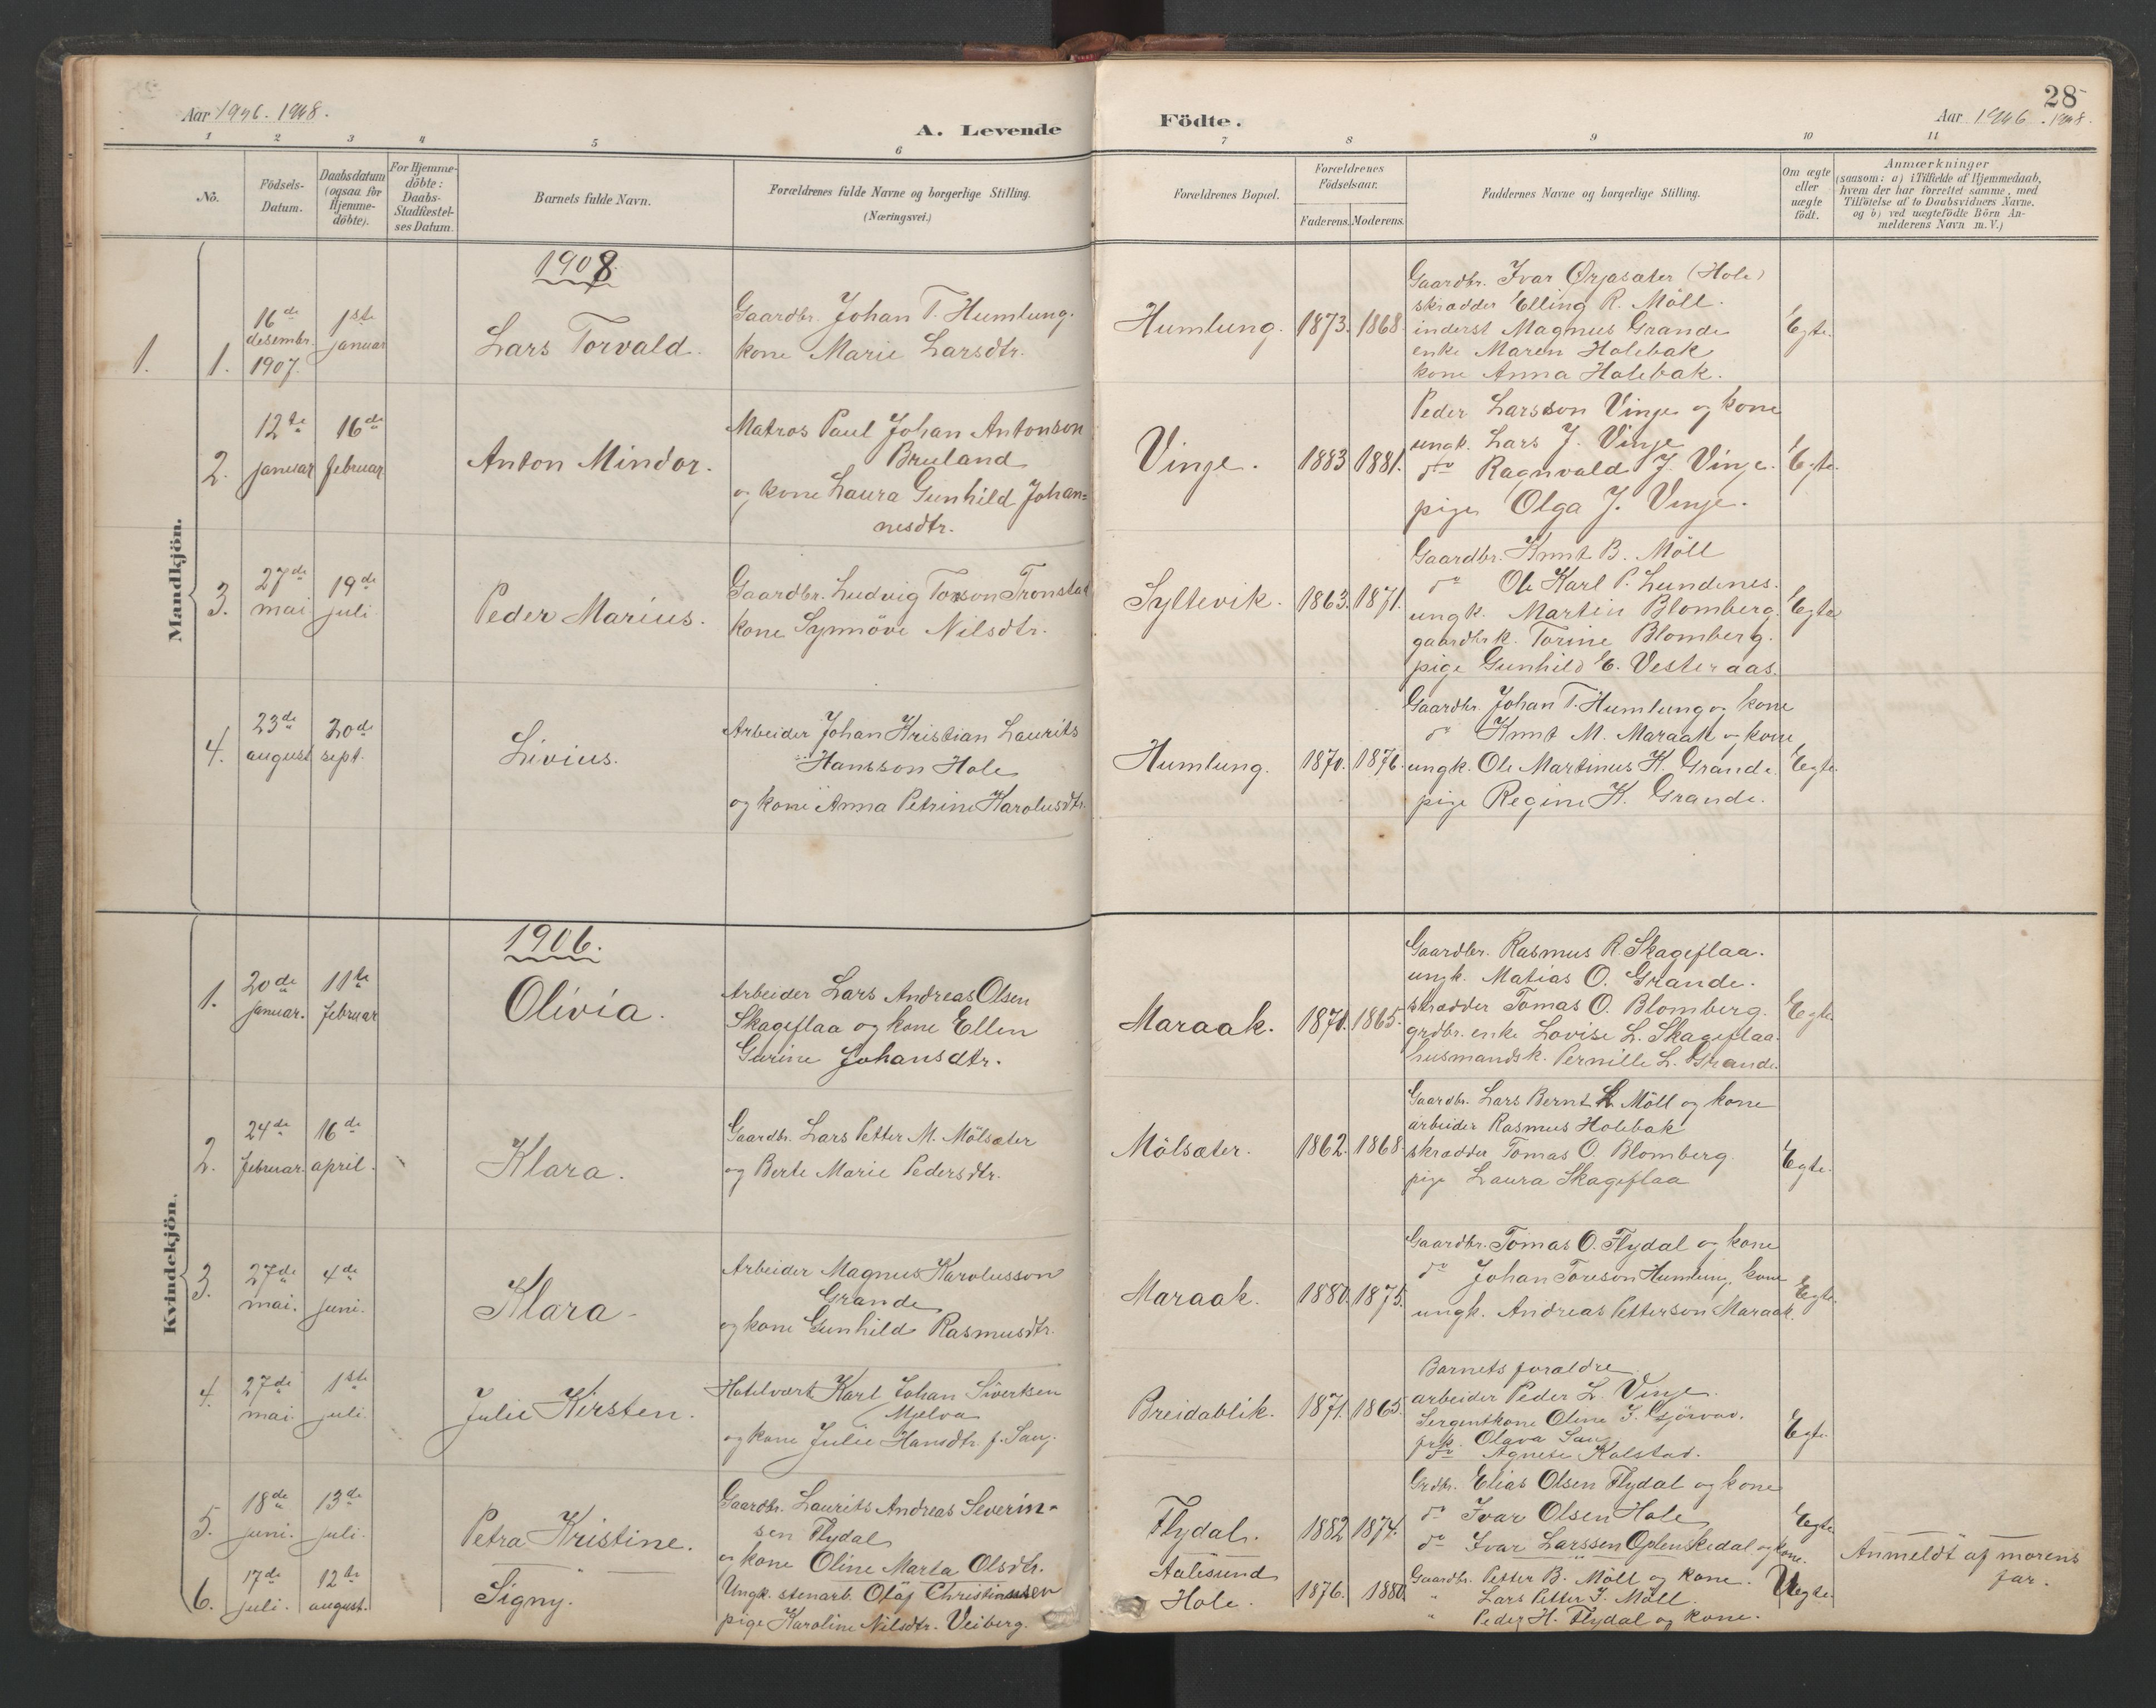 Aar 1906. 1908.
A. Levende
Födte.
Aar 1906. 1908.
28
1 2 3 4 5 6 7 8 9 10 11
No.
Födsels-Datum.
Daabsdatum (ogsaa for Hjemme-döbte).
For Hjemme-döbte: Daabs-Stadfæstel-ses Datum.
Barnets fulde Navn.
Forældrenes fulde Navne og borgerlige Stilling.
(Næringsvei.)
Forældrenes Bopæl.
Forældrenes Födselsaar.
Faderens. Moderens.
Faddernes Navne og borgerlige Stilling.
Om ægte eller uægte födt.
Anmærkninger
(saasom: a) i Tilfælde af Hjemmedaab,
hvem der har forrettet samme, med
Tilföielse af to Daabsvidners Navne.
og b) ved uægtefödte Börn An-
melderens Navn m.V.)
Mandkjön.
1908
1. 1.
16de desembr. 1907.
1ste januar
Lars Torvald.
Gaardbr. Johan T. Humlung.
kone Marie Larsdtr.
Humlung. 1873. 1868.
Gaardbr. Ivar Ørjasæter (Hole)
skrædder Elling R. Möll.
inderst Magnus Grande
enke Maren Holebak
kone Anna Holebak.
Egte.
2.
12te januar
16de februar
Anton Mindor.
Matros Paul Johan Antonson
Bruland
og kone Laura Gunhild Johan=
nesdtr.
Vinje. 1883 1881.
Peder Larsson Vinje og kone
ungk. Lars J. Vinje
do Ragnvald J. Vinje.
pige Olga J. Vinje.
Egte.
3.
27de mai
19de juli
Peder Marius.
Gaardbr. Ludvig Torson Tronstad
kone Synnöve Nilsdtr.
Syltevik. 1863. 1871.
Gaardbr. Knut B. Möll
do Ole Karl P. Lundenes.
ungk. Martin Blomberg.
gaardbrk. Torine Blomberg.
pige Gunhild E. Vesteraas.
Egte
4.
23de august
20de sept.
Livius.
Arbeider Johan Kristian Laurits
Hansson Hole
og kone Anna Petrine Karolusdtr.
Humlung. 1870. 1876.
Gaardbr. Johan T. Humlung og kone
do Knut M. Maraak og kone
ungk. Ole Martinus K. Grande
pige Regine K. Grande.
Egte.
Kvindekjön.
1906.
1.
20de januar.
11te februar
Olivia.
Arbeider Lars Andreas Olsen
Skageflaa og kone Ellen
Gurine Johansdtr.
Maraak. 1870. 1865.
Gaardbr. Rasmus R. Skageflaa.
ungk. Matias O. Grande.
skrædder Tomas O. Blomberg.
grdbr. enke Lovise L. Skageflaa.
husmandsk. Pernille L. Grande.
Egte
2.
24de februar.
16de april.
Klara.
Gaardbr. Lars Petter M. Mölsæter
og Berte Marie Pedersdtr.
Mölsæter. 1862. 1868.
Gaardbr. Lars Bernt Möll og kone
arbeider Rasmus Holebak
skrædder Tomas O. Blomberg.
pige Laura Skageflaa
Egte.
3.
27de mai.
4de juni.
Klara
Arbeider Magnus Karolusson
Grande
og kone Gunhild Rasmusdtr.
Maraak. 1880. 1875.
Gaardbr. Tomas O. Flydal og kone
do Johan Toreson Humlung, kone
ungk. Andreas Petterson Maraak.
Egte.
4.
27de mai.
1ste juli.
Julie Kirsten.
Hotelvært Karl Johan Sivertsen
Mjelva
og kone Julie Hansdtr. f. Saug.
Breidablik. 1871. 1865.
Barnets foraldre
arbeider Peder L. Vinje.
Sergentkone Oline I. Gjörvad.
frk. Olava Saug
do Agnese Kalstad.
Egte.
5.
18de juni.
13de juli.
Petra Kristine.
Gaardbr. Laurits Andreas Severin-
sen Flydal
og kone Oline Marta Olsdtr.
Flydal. 1882 1874.
Grdbr. Elias Olsen Flydal og kone
do Ivar Olsen Hole
do Ivar Larssen Oplenskedal og kone.
Egte
6.
17de juli.
12te august.
Signy.
Ungk. stenarb. Olaf Christinusen
pige Karoline Nilsdtr. Veiberg.
Aalesund
Hole. 1876. 1880.
Gaardbr. Petter B. Möll og kone.
" Lars Petter J. Möll.
" Peder H. Flydal og kone.
Uegte.
Anmeldt af morens
far.